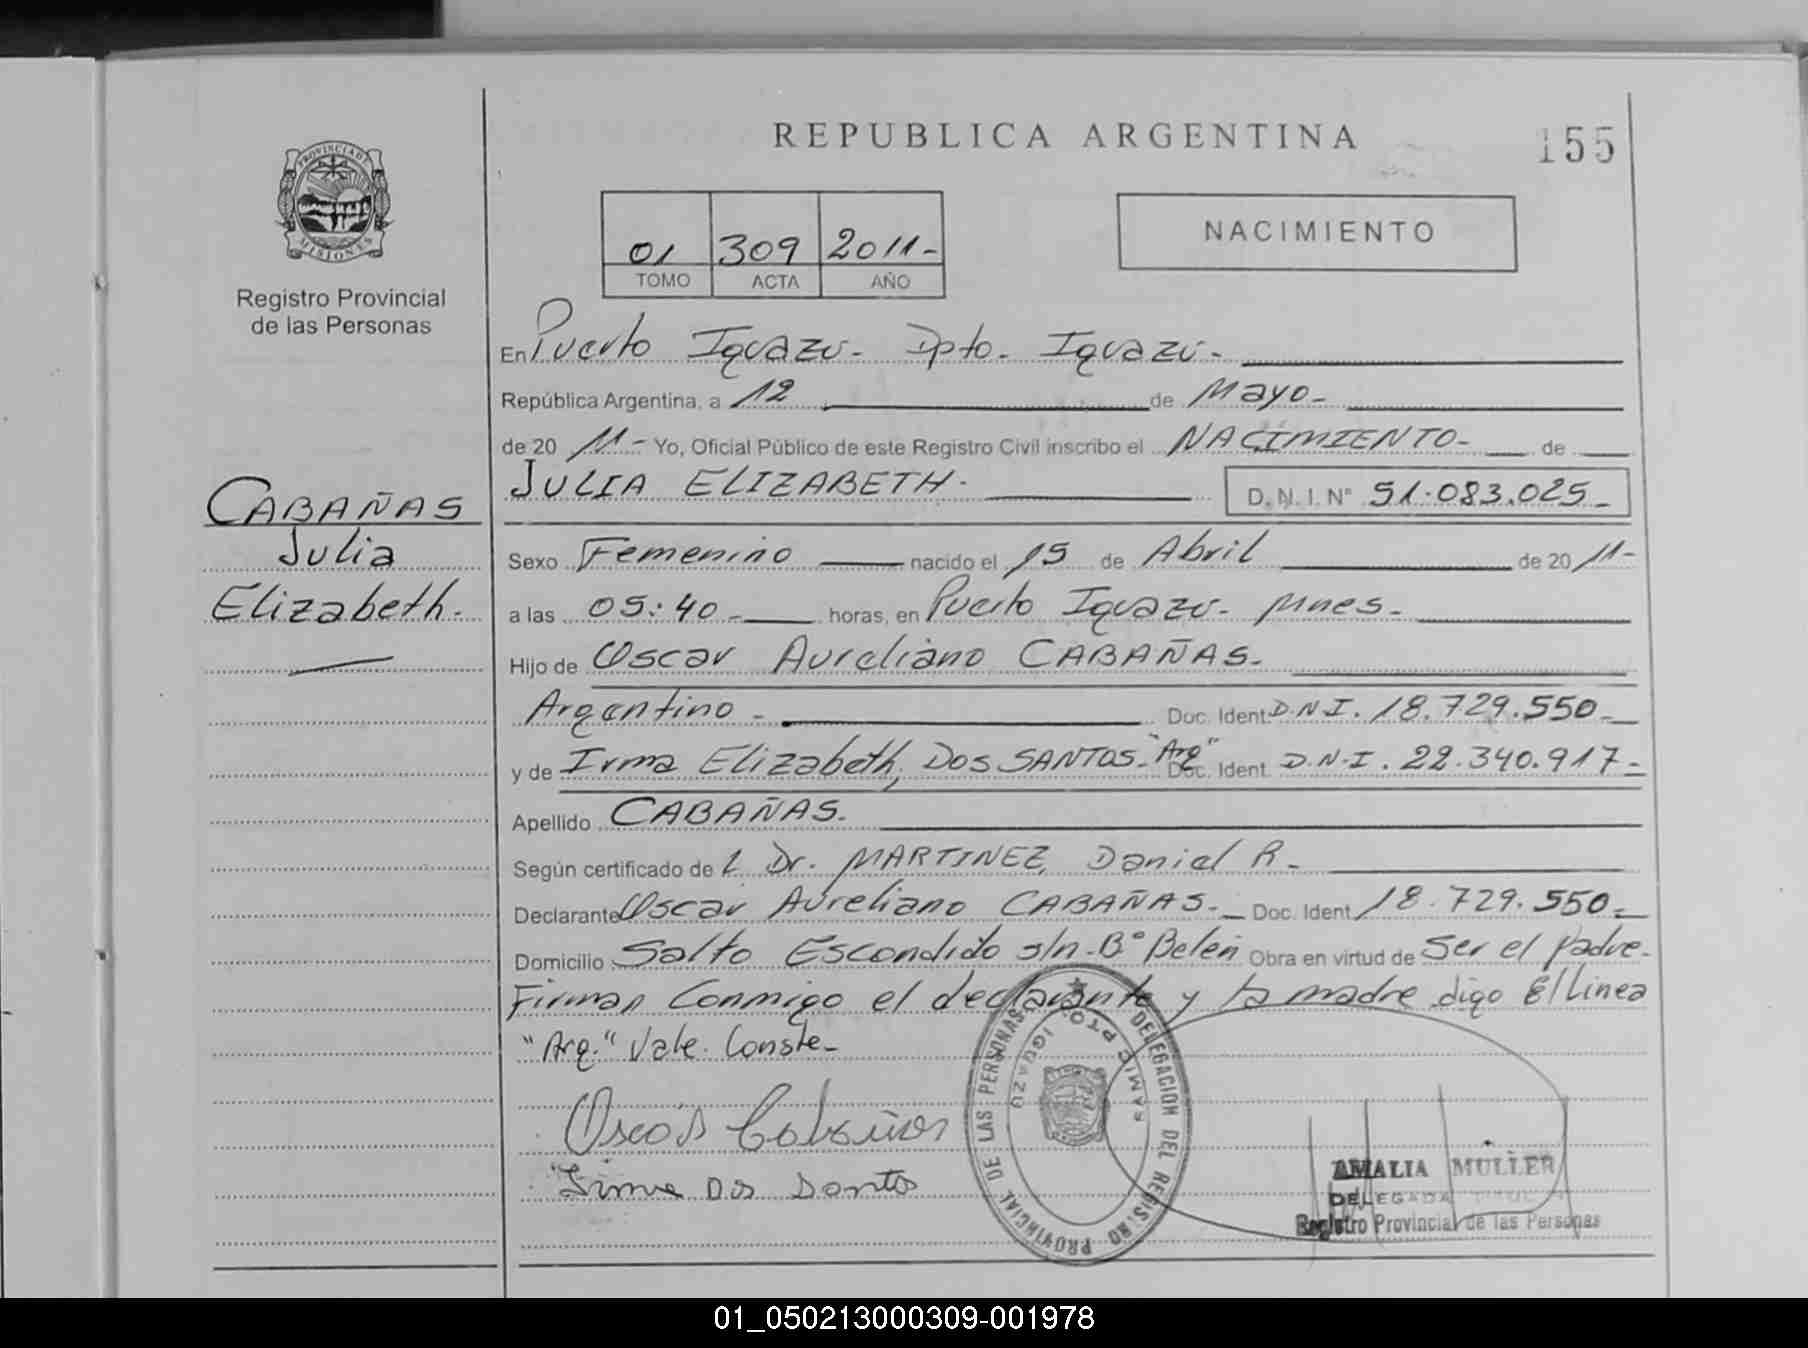 REPUBLICA ARGENTINA
155
PROVINCIA DE MISIONES
Registro Provincial
de las Personas
01 309 2011-
TOMO ACTA AÑO
NACIMIENTO
En Puerto Iguazú- Dpto- Iguazú-
República Argentina, a 12 de Mayo-
de 20 11- Yo, Oficial Público de este Registro Civil inscribo el NACIMIENTO- de
JULIA ELIZABETH- D.N.I. N° 51.083.025-
CABAÑAS
Julia
Elizabeth-
Sexo Femenino nacido el 15 de Abril de 20 11-
a las 05:40- horas, en Puerto Iguazú- Mnes-
Hijo de Oscar Aureliano CABAÑAS-
Argentino- Doc. Ident D.N.I. 18.729.550-
y de Irma Elizabeth, DOS SANTOS- "Arg" Doc. Ident. D.N.I. 22.340.917-
Apellido CABAÑAS-
Según certificado de L Dr. MARTINEZ, Daniel R-
Declarante Oscar Aureliano CABAÑAS- Doc. Ident 18.729.550-
Domicilio Salto Escondido s/n-B° Belén Obra en virtud de Ser el Padre-
Firman Conmigo el declarante y la madre digo E/Linea
"Arg." Vale. Conste-
Oscar Cabañas
Irma Dos Santos
DELEGACION DEL REGISTRO PROVINCIAL DE LAS PERSONAS
PTO. IGUAZU
AMALIA MULLER
DELEGADA
Registro Provincial de las Personas
01_050213000309-001978